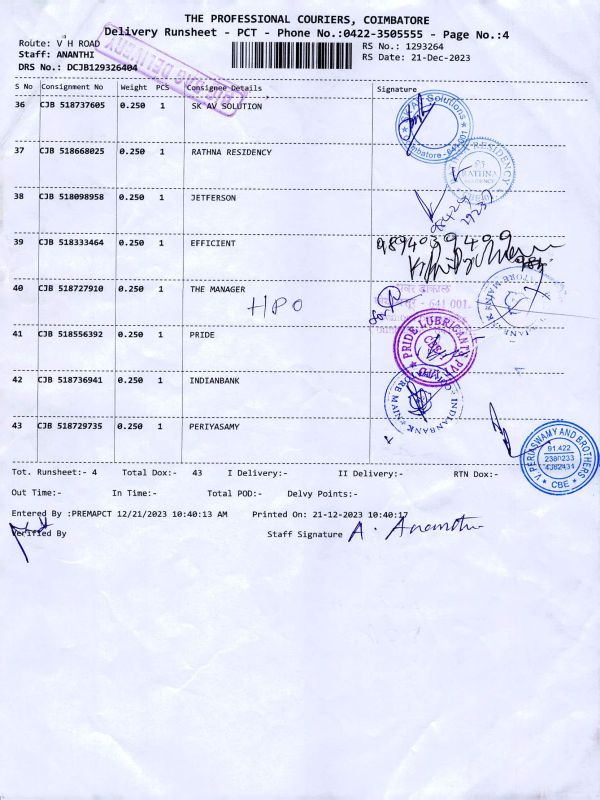 THE PROFESSIONAL COURIERS, COIMBATORE
Delivery Runsheet - PCT - Phone No.:0422-3505555 - Page No.:4
Route: V H ROAD
RS No.: 1293264
Staff: ANANTHI
RS Date: 21-Dec-2023
DRS No.: DCJB129326404
S No Consignment No Weight PCS Consignee Details Signature
36 CJB 518737605 0.250 1 SK AV SOLUTION
37 CJB 518668025 0.250 1 RATHNA RESIDENCY
38 CJB 518098958 0.250 1 JETFERSON
39 CJB 518333464 0.250 1 EFFICIENT
40 CJB 518727910 0.250 1 THE MANAGER
HPO
- 641 001.
41 CJB 518556392 0.250 1 PRIDE
PRIDE LUBRICANTS PVT LTD
42 CJB 518736941 0.250 1 INDIANBANK
INDIANBANK
43 CJB 518729735 0.250 1 PERIYASAMY
V.PERIASWAMY AND BROTHERS
CBE
Tot. Runsheet:- 4 Total Dox:- 43 I Delivery:- II Delivery:- RTN Dox:-
Out Time:- In Time:- Total POD:- Delvy Points:-
Entered By :PREMAPCT 12/21/2023 10:40:13 AM Printed On: 21-12-2023 10:40:17
Verified By Staff Signature A. Ananthi